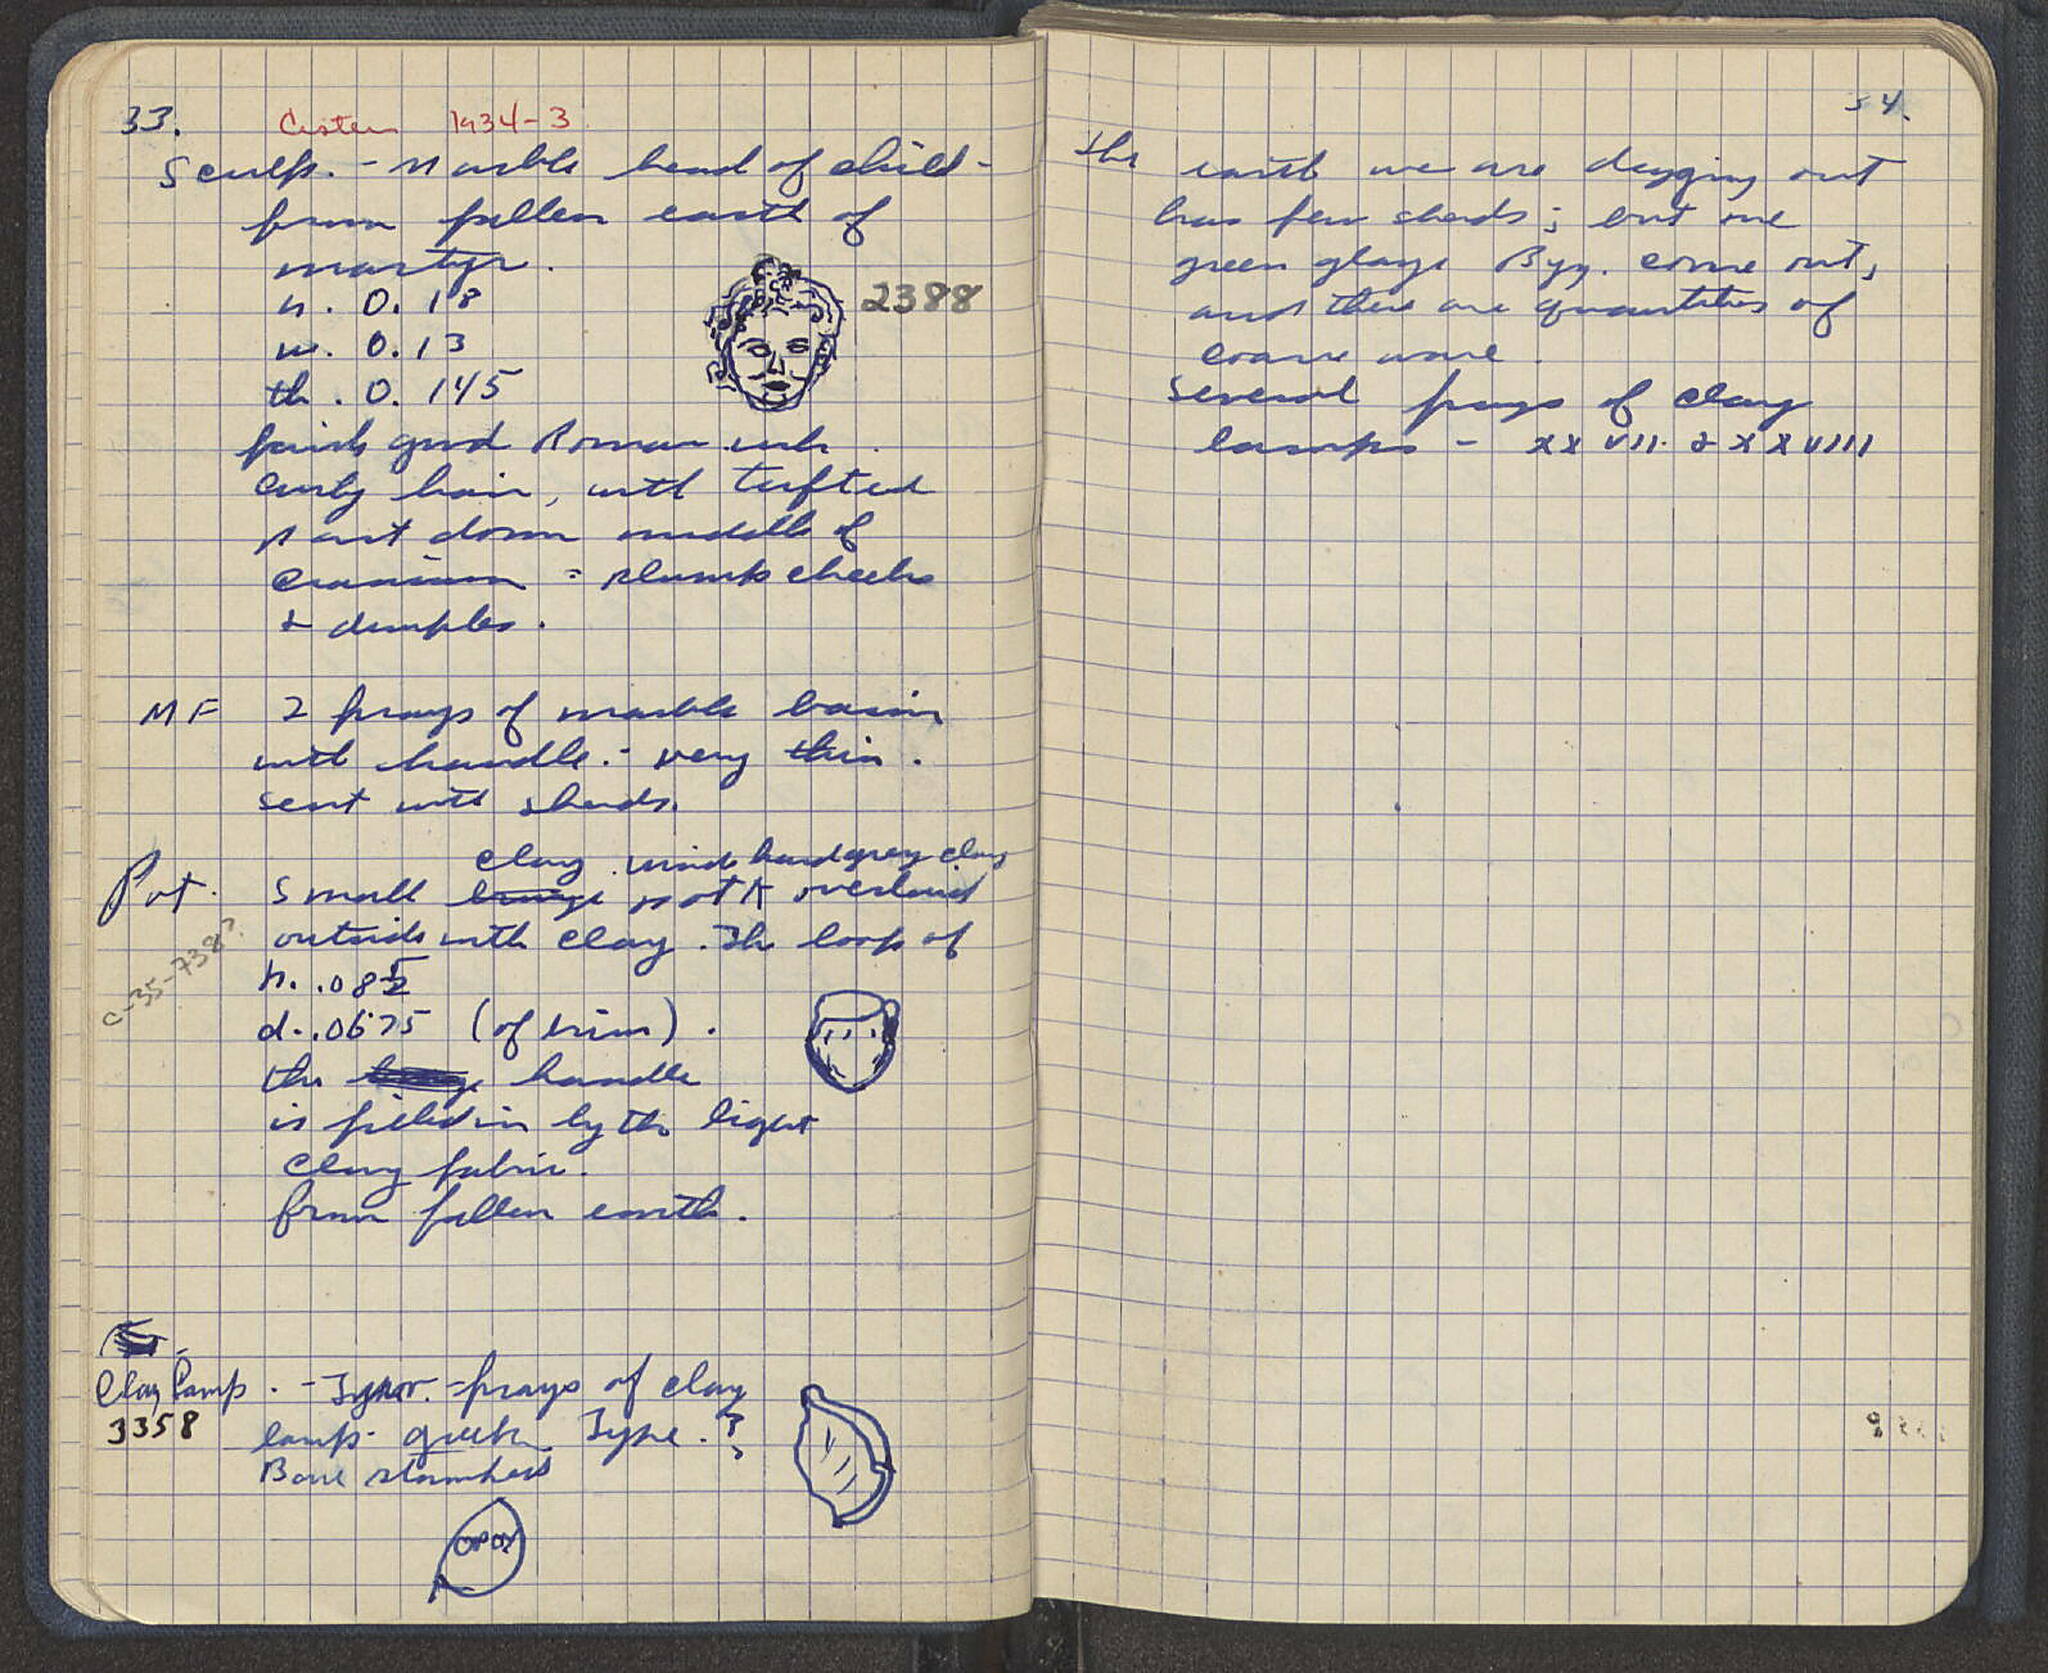 33.
Cistern 1934-3
Sculp. - Marble head of child -
from fallen earth of
martyr.
h. 0.18
w. 0.13
2388
th. 0.145
good Roman
curly hair, with tufted
part down middle of
cranium = plump cheeks
& dimples.
MF 2 frags of marble basin
with handle. - very thin.
sent with sherds.
clay hard grey clay
Pot. Small pot overlaid
outside with clay. The loop of
C-35-738?
h. .085
d. .0675 (of rim).
the handle
is filled in by the light
clay fabric.
from fallen earth.
Clay Lamp. - frags of clay
3358
lamp - Greek Type. ?
Base stamped
34.
The earth we are digging out
has few sherds; but one
green glaze Byz. come out,
and there are quantities of
coarse ware.
Several frags of clay
lamps - XXVII & XXVIII